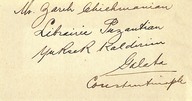 Mr Zareh Chichmanian
Librairie Pazantian
Yuksek Kaldirim
Galata
Constantinople